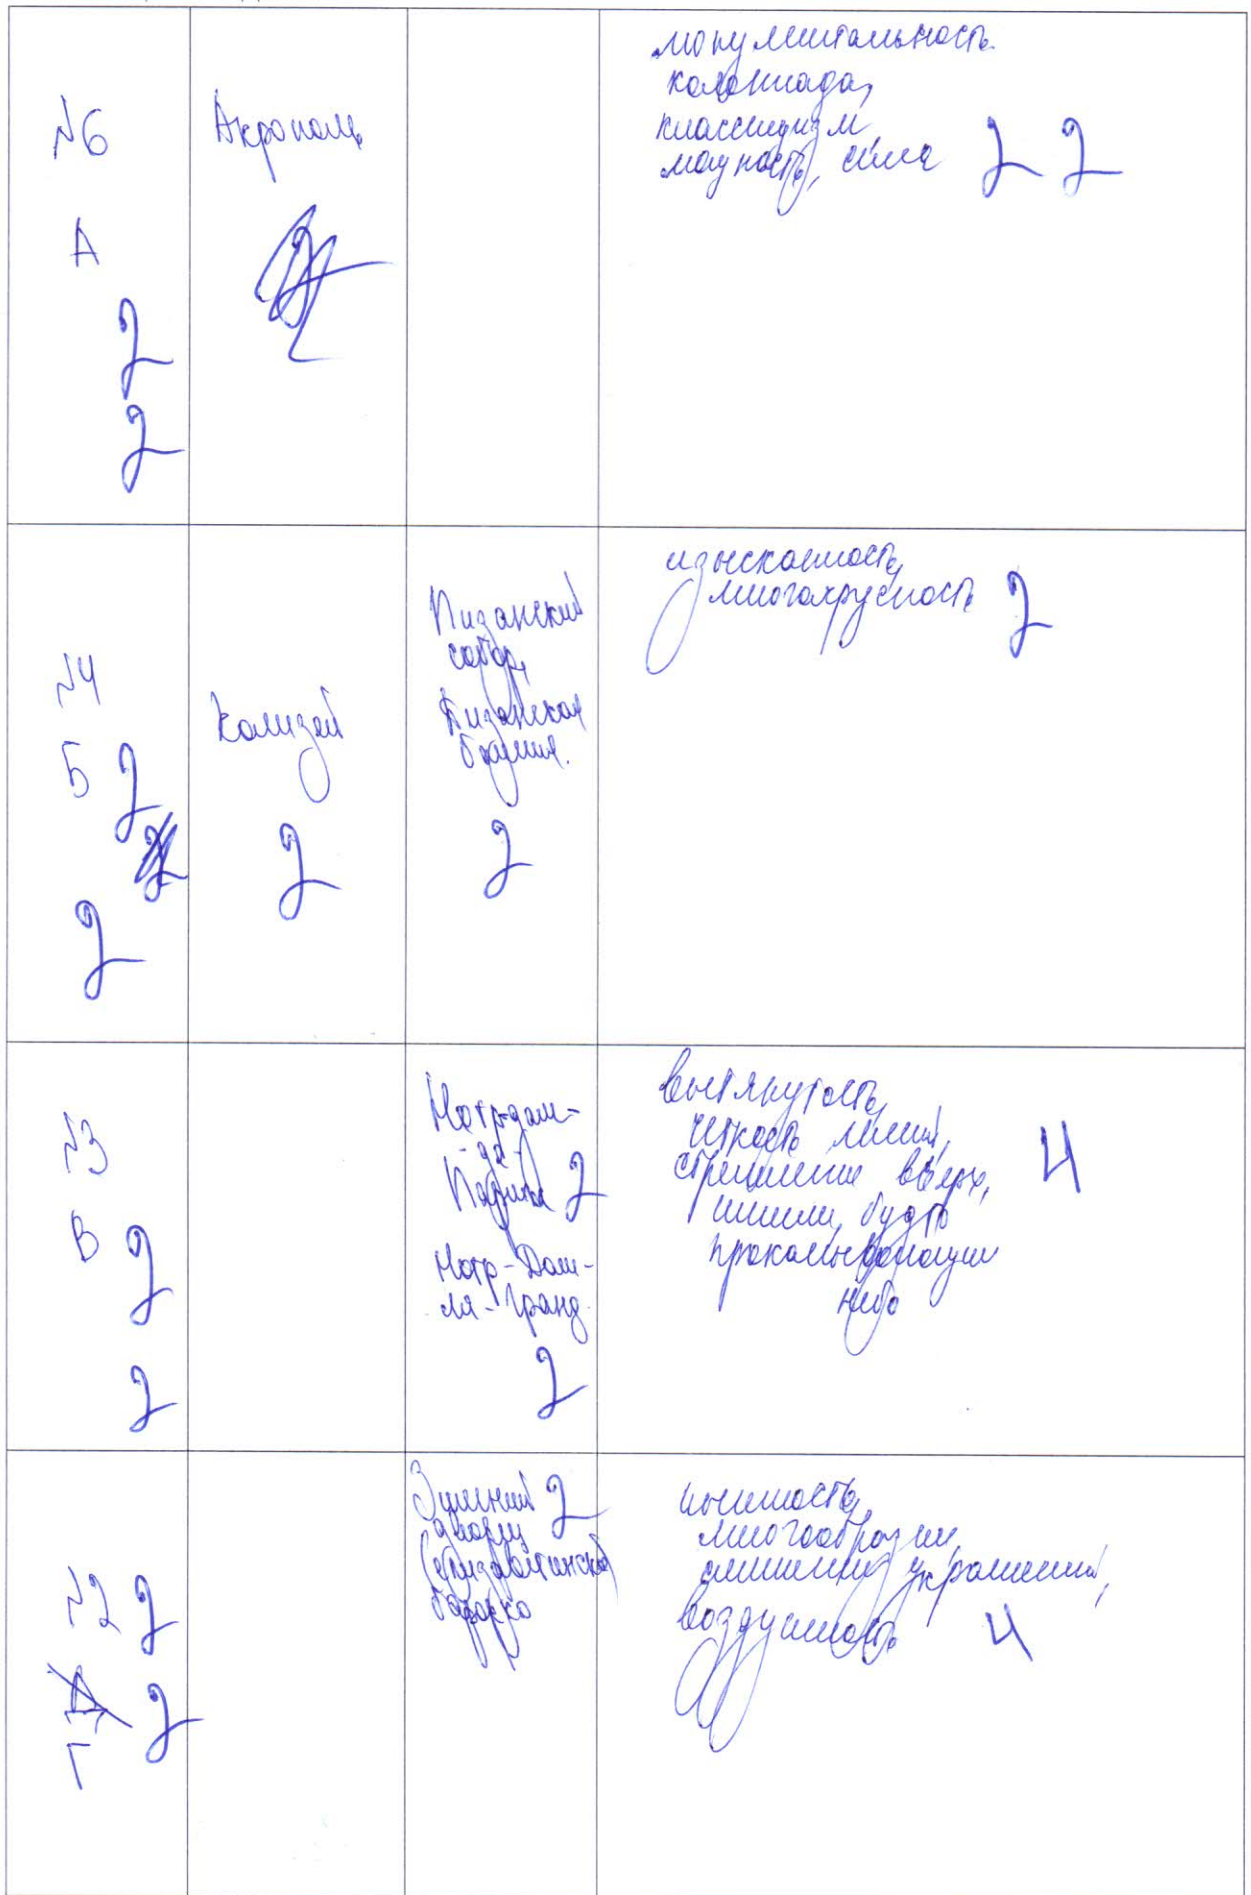 №6
А
2
2
Акрополь
монументальность.
колоннада,
классицизм,
мощность, сила 2 2
№4
Б 2
2
Колизей
2
Пизанский
собор,
Пизанская
башня.
2
изысканность,
многоярусность 2
№3
В 2
2
Нотр-дам-
-де-
Парижа 2
Нотр-Дам-
ля-Гранд.
2
вытянутость,
четкость линий,
стремление вверх, 4
шпили, будто
прокалывающие
небо
№2 2
2
Г
Зимний 2
дворец
(елизаветинское
барокко
пышность,
многообразие,
украшений,
воздушность 4